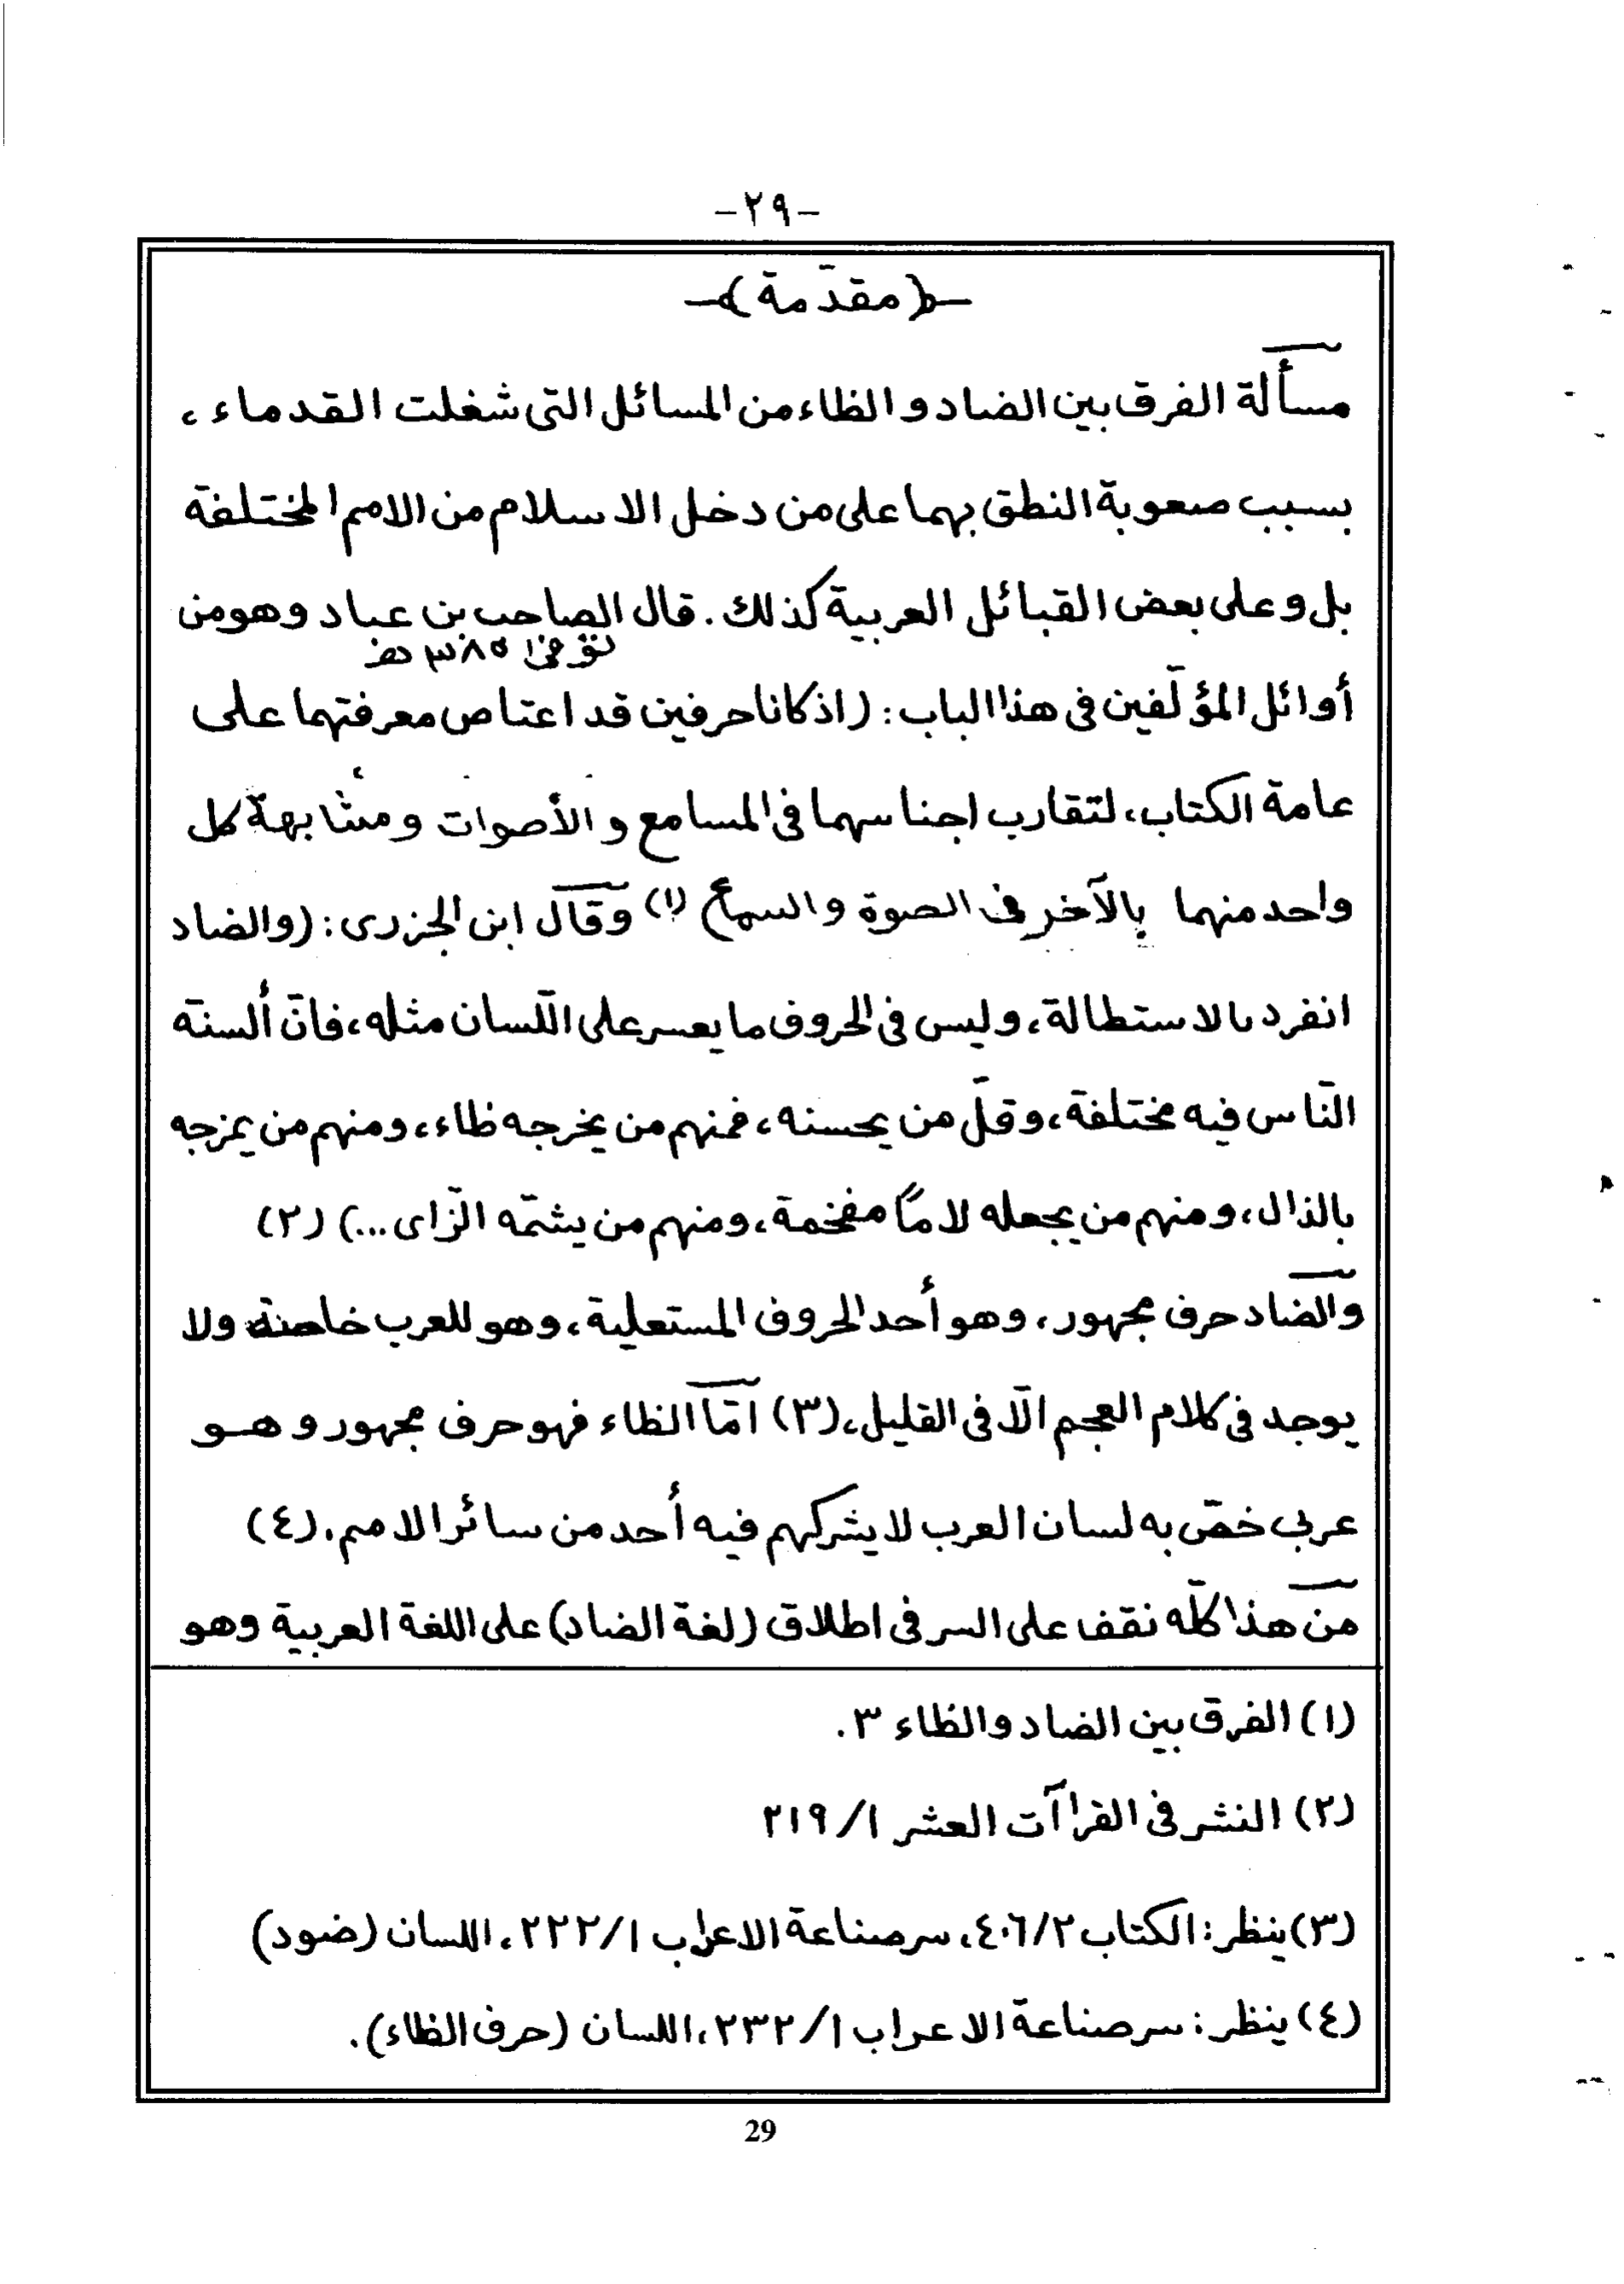 -٢٩-
-(مقدّمة)-
مسألة الفرق بين الضاد والظاء من المسائل التى شغلت القدماء ،
بسبب صعوبة النطق بهما على من دخل الاسلام من الامم المختلفة
بل وعلى بعض القبائل العربية كذلك . قال الصاحب بن عباد وهو من
توفى ٣٨٥ هـ
أوائل المؤلّفين فى هذا الباب : (اذ كانا حرفين قد اعتاص معرفتهما على
عامة الكتاب، لتقارب اجناسهما فى المسامع و الأصوات ومشابهة كل
واحد منهما بالآخر فى الصوة والسماع (١) وقال ابن الجزرى : (والضاد
انفرد بالاستطالة، وليس فى الحروف ما يعسر على اللّسان مثله، فانّ ألسنة
النّاس فيه مختلفة، وقلّ من يحسنه، فمنهم من يخرجه ظاء، ومنهم من يمزجه
بالذال، ومنهم من يجعله لامًا مفخمة، ومنهم من يشمّه الزّاى ...) (٢)
والضاد حرف مجهور، وهو أحد الحروف المستعلية، وهو للعرب خاصة ولا
يوجد فى كلام العجم الّا فى القليل، (٣) امّا الظاء فهو حرف مجهور وهو
عربى خصّ به لسان العرب لا يشركهم فيه أحد من سائر الامم. (٤)
من هذا كلّه نقف على السر فى اطلاق (لغة الضاد) على اللغة العربية وهو
(١) الفرق بين الضاد والظاء ٣ .
(٢) النشر فى القراآت العشر ١/ ٢١٩
(٣) ينظر: الكتاب ٢/ ٤٠٦، سر صناعة الاعراب ١/ ٢٢٢، اللسان (ضود)
(٤) ينظر: سر صناعة الاعراب ١/ ٢٣٢، اللسان (حرف الظاء).
29